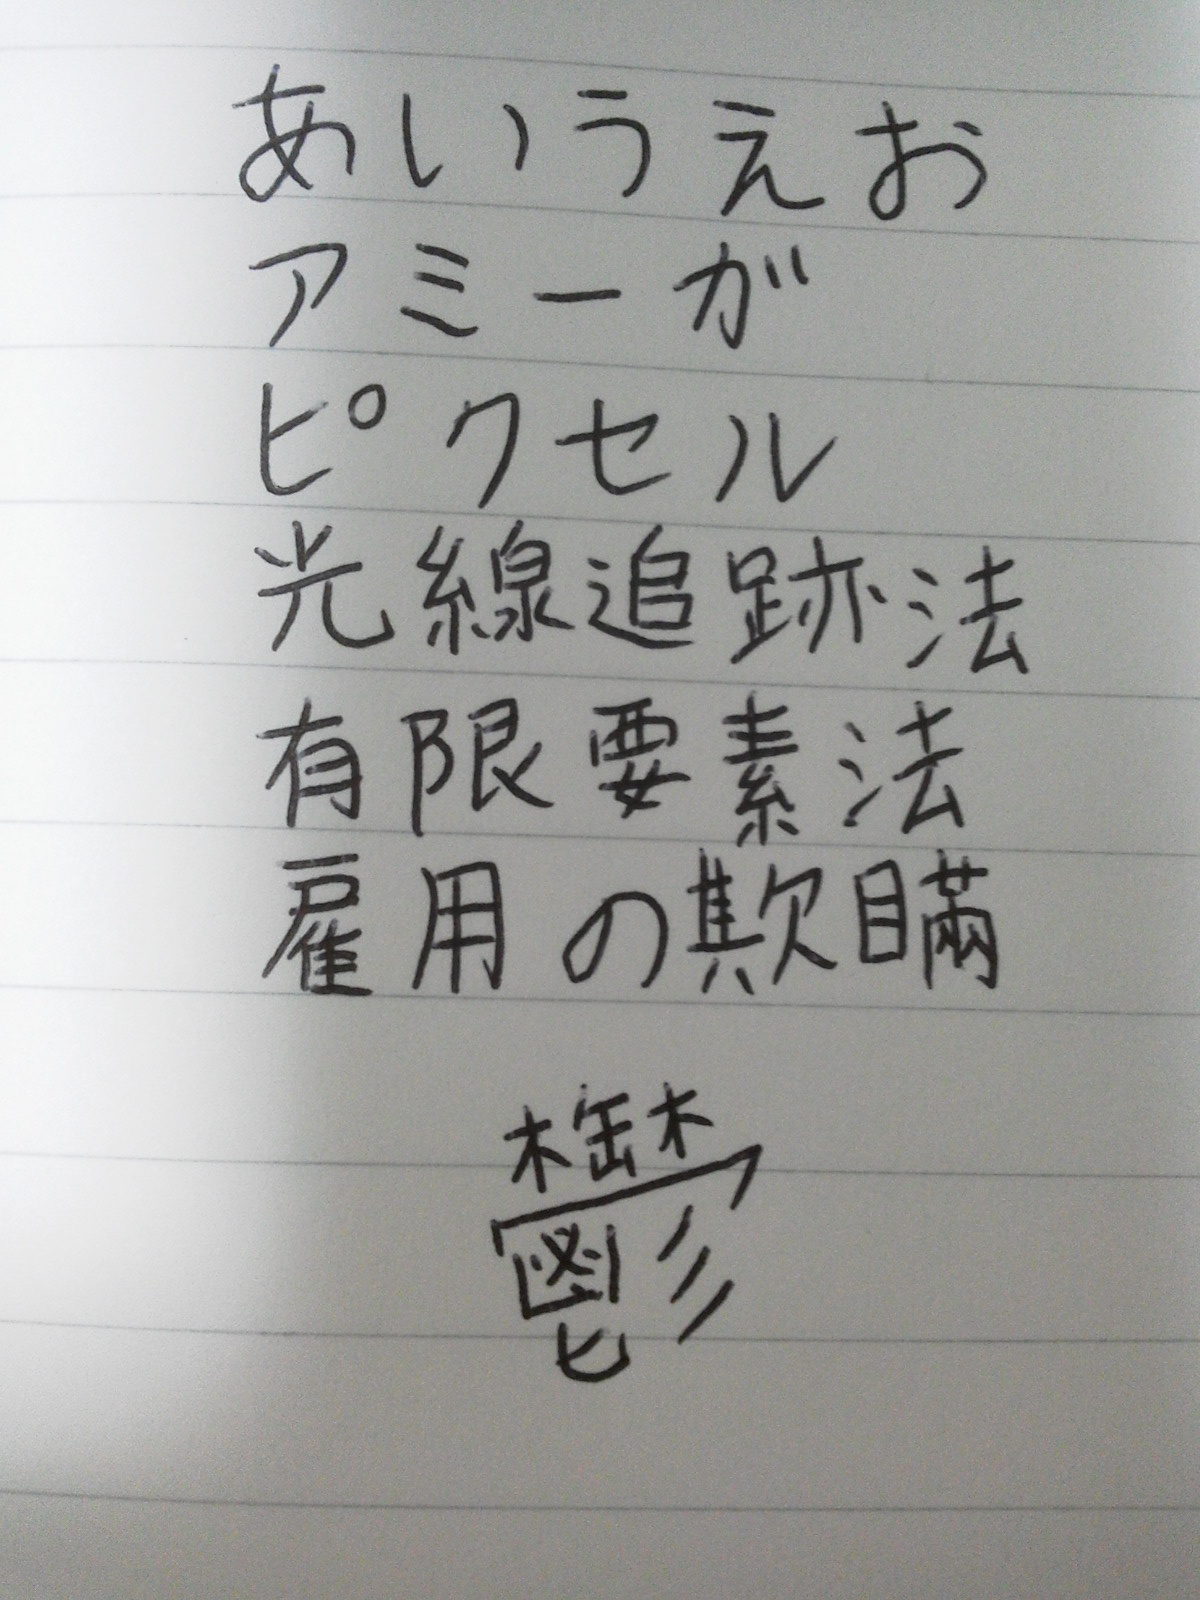 あいうえお
アミーガ
ピクセル
光線追跡法
有限要素法
雇用の欺瞞
鬱